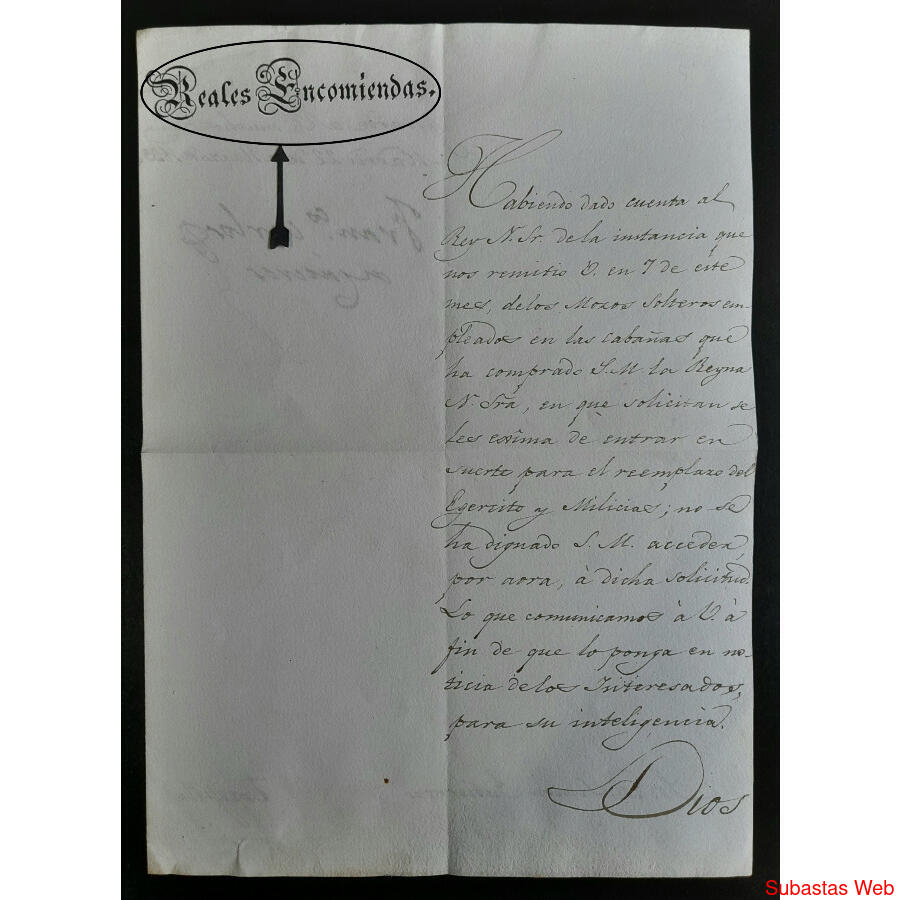 Reales Encomiendas.
Habiendo dado cuenta al
Rey N. Sr. de la instancia que
nos remitio V. en 7 de este
mes, delos Mozos Solteros em-
pleados en las cabañas que
ha comprado S.M la Reyna
N. Srã, en que solicitan se
les exîma de entrar en
suerte para el reemplazo del
Egercito y Milicias; no se
ha dignado S. M. acceder,
por aora, à dicha solicitud.
Lo que comunicamos à V. à
fin de que lo ponga en no-
ticia delos Interesados,
para su inteligencia.
Dios
Subastas Web